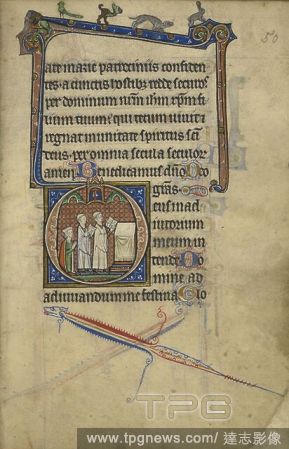 50
ate marie patrociniis confiden
tes a cunctis hostibus redde securos
per dominum nrm ihm xpm fi
lium tuum qui tecum uiuit
regnat in unitate spiritus sci
deus per omnia secula seculor
amen Benedicamus dno Deo
gras
eus in ad
iutorium
meum in
tende Do
mine ad
adiuuandum me festina Glo
TPG
www.tpgnews.com/ 達志影像